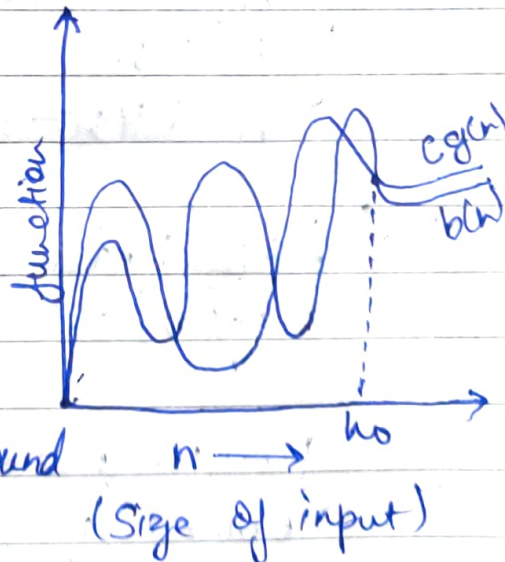 function
cg(n)
b(n)
n0
und n →
(Size of input)